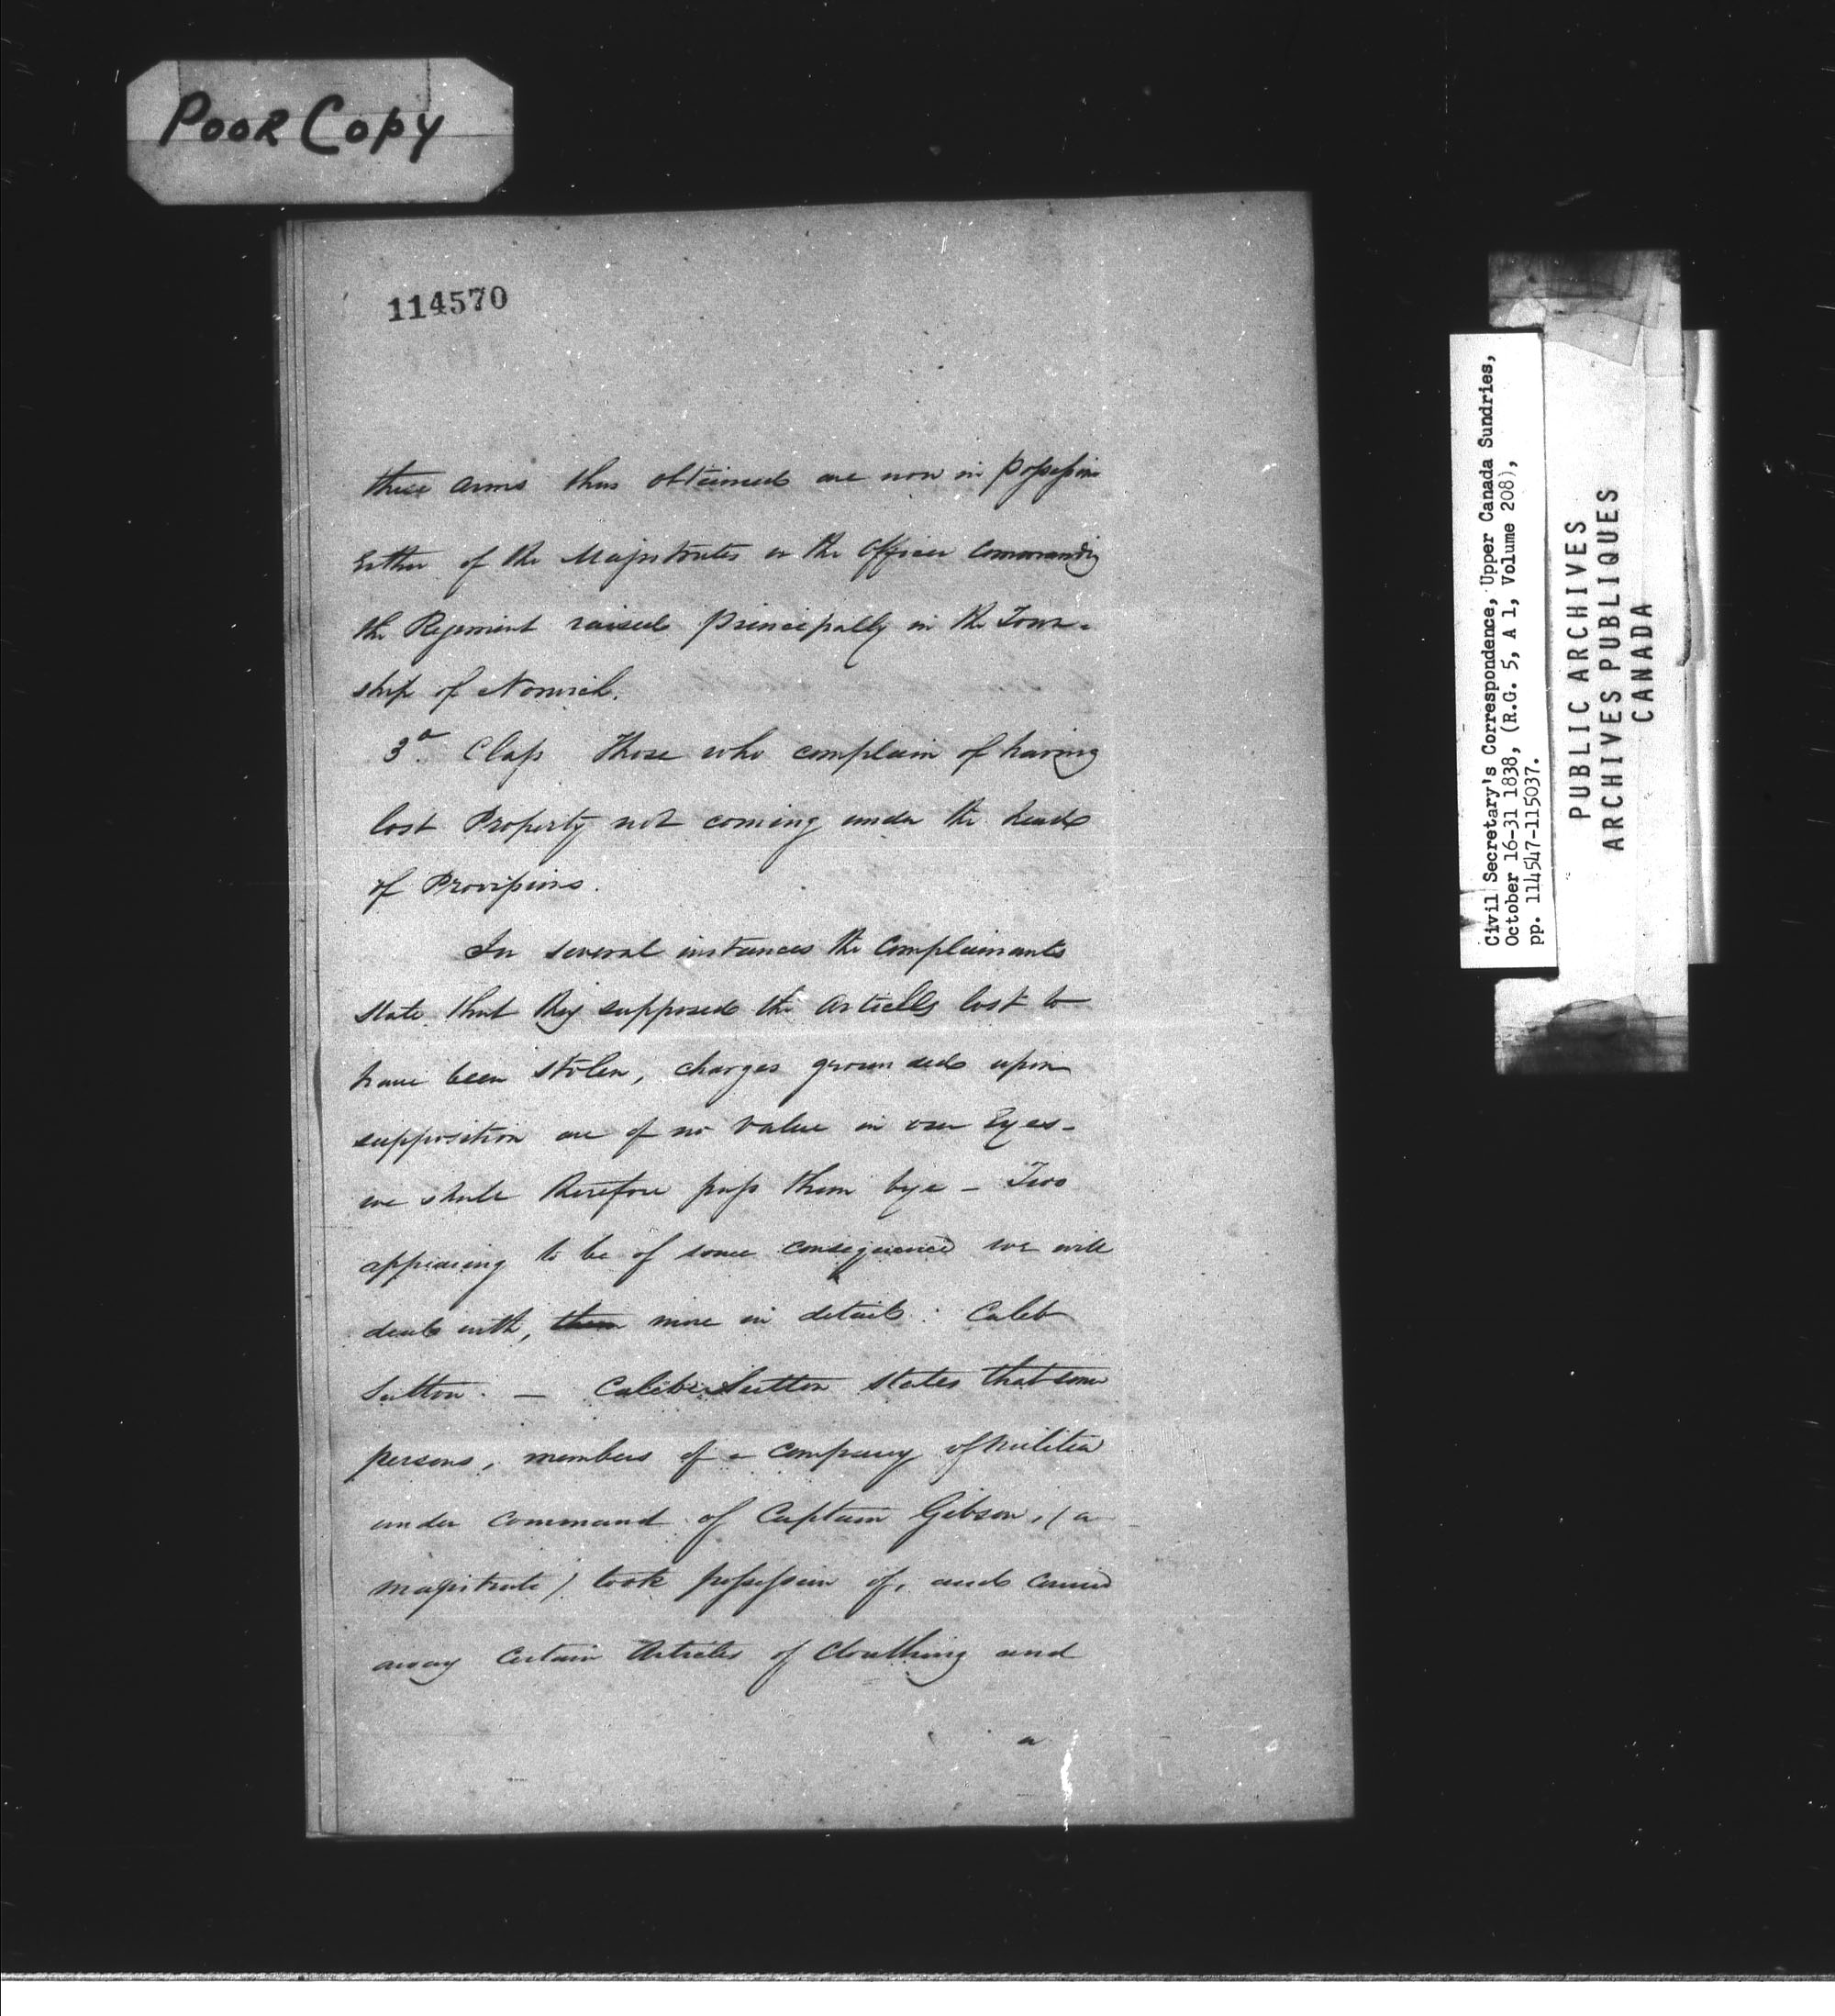 Poor Copy
114570
these arms thus obtained are now in possession
Either of the Magistrates or the Officer commanding
the Regiment raised principally in the Town-
ship of Norwich.
3d Class Those who complain of having
lost Property not coming under the head
of Provisions.
In several instances the Complainants
state that they supposed the Articles lost to
have been stolen, charges grounded upon
supposition are of no value in our Eyes-
we shall therefore pass them bye - Two
appearing to be of some consequence we will
deal with, them more in detail : Caleb
Sutton. - Caleb Sutton states that some
persons, members of a company of militia
under command of Captain Gibson, (a
magistrate) took possession of, and carried
away certain Articles of Clouthing and
a
Civil Secretary's Correspondence, Upper Canada Sundries,
October 16-31 1838, (R.G. 5, A 1, Volume 208),
pp. 114547-115037.
PUBLIC ARCHIVES
ARCHIVES PUBLIQUES
CANADA